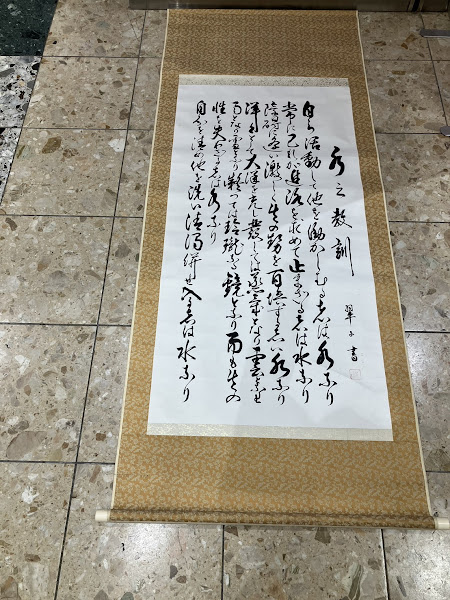 水之教訓
自ら活動して他を動かしむる者は水なり
常に己れが進路を求めて止まざる者は水なり
障碍に逢い激しく其の勢を百倍する者は水なり
洋々として大洋を充し発しては蒸気となり雲となり
雨となり雪となり凝っては玲瓏たる鏡となり而も其の
性を失わざる者は水なり
自己を清め他を洗い清濁併せ入る者は水なり
書